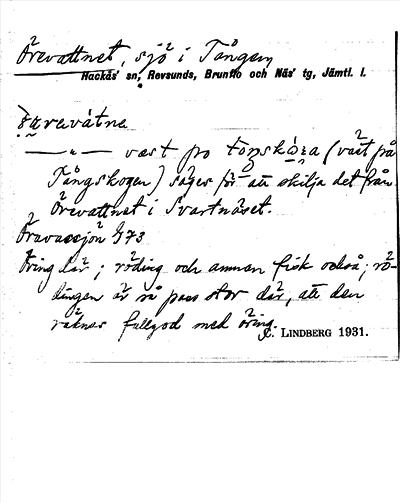 Örevattnet, sjö i Tången,
Hackås' sn, Revsunds, Brunflo och Näs' tg, Jämtl. l.
vàtne
— „ — väst på (väst på
Tångskogen) säges för att skilja det från
Örevattnet i Svartnäset.
Öravassjön G73
Öring där; röding och annan fisk också; rö-
dingen är så pass stor där, att den
räknas fullgod med öring.
C. LINDBERG 1931.